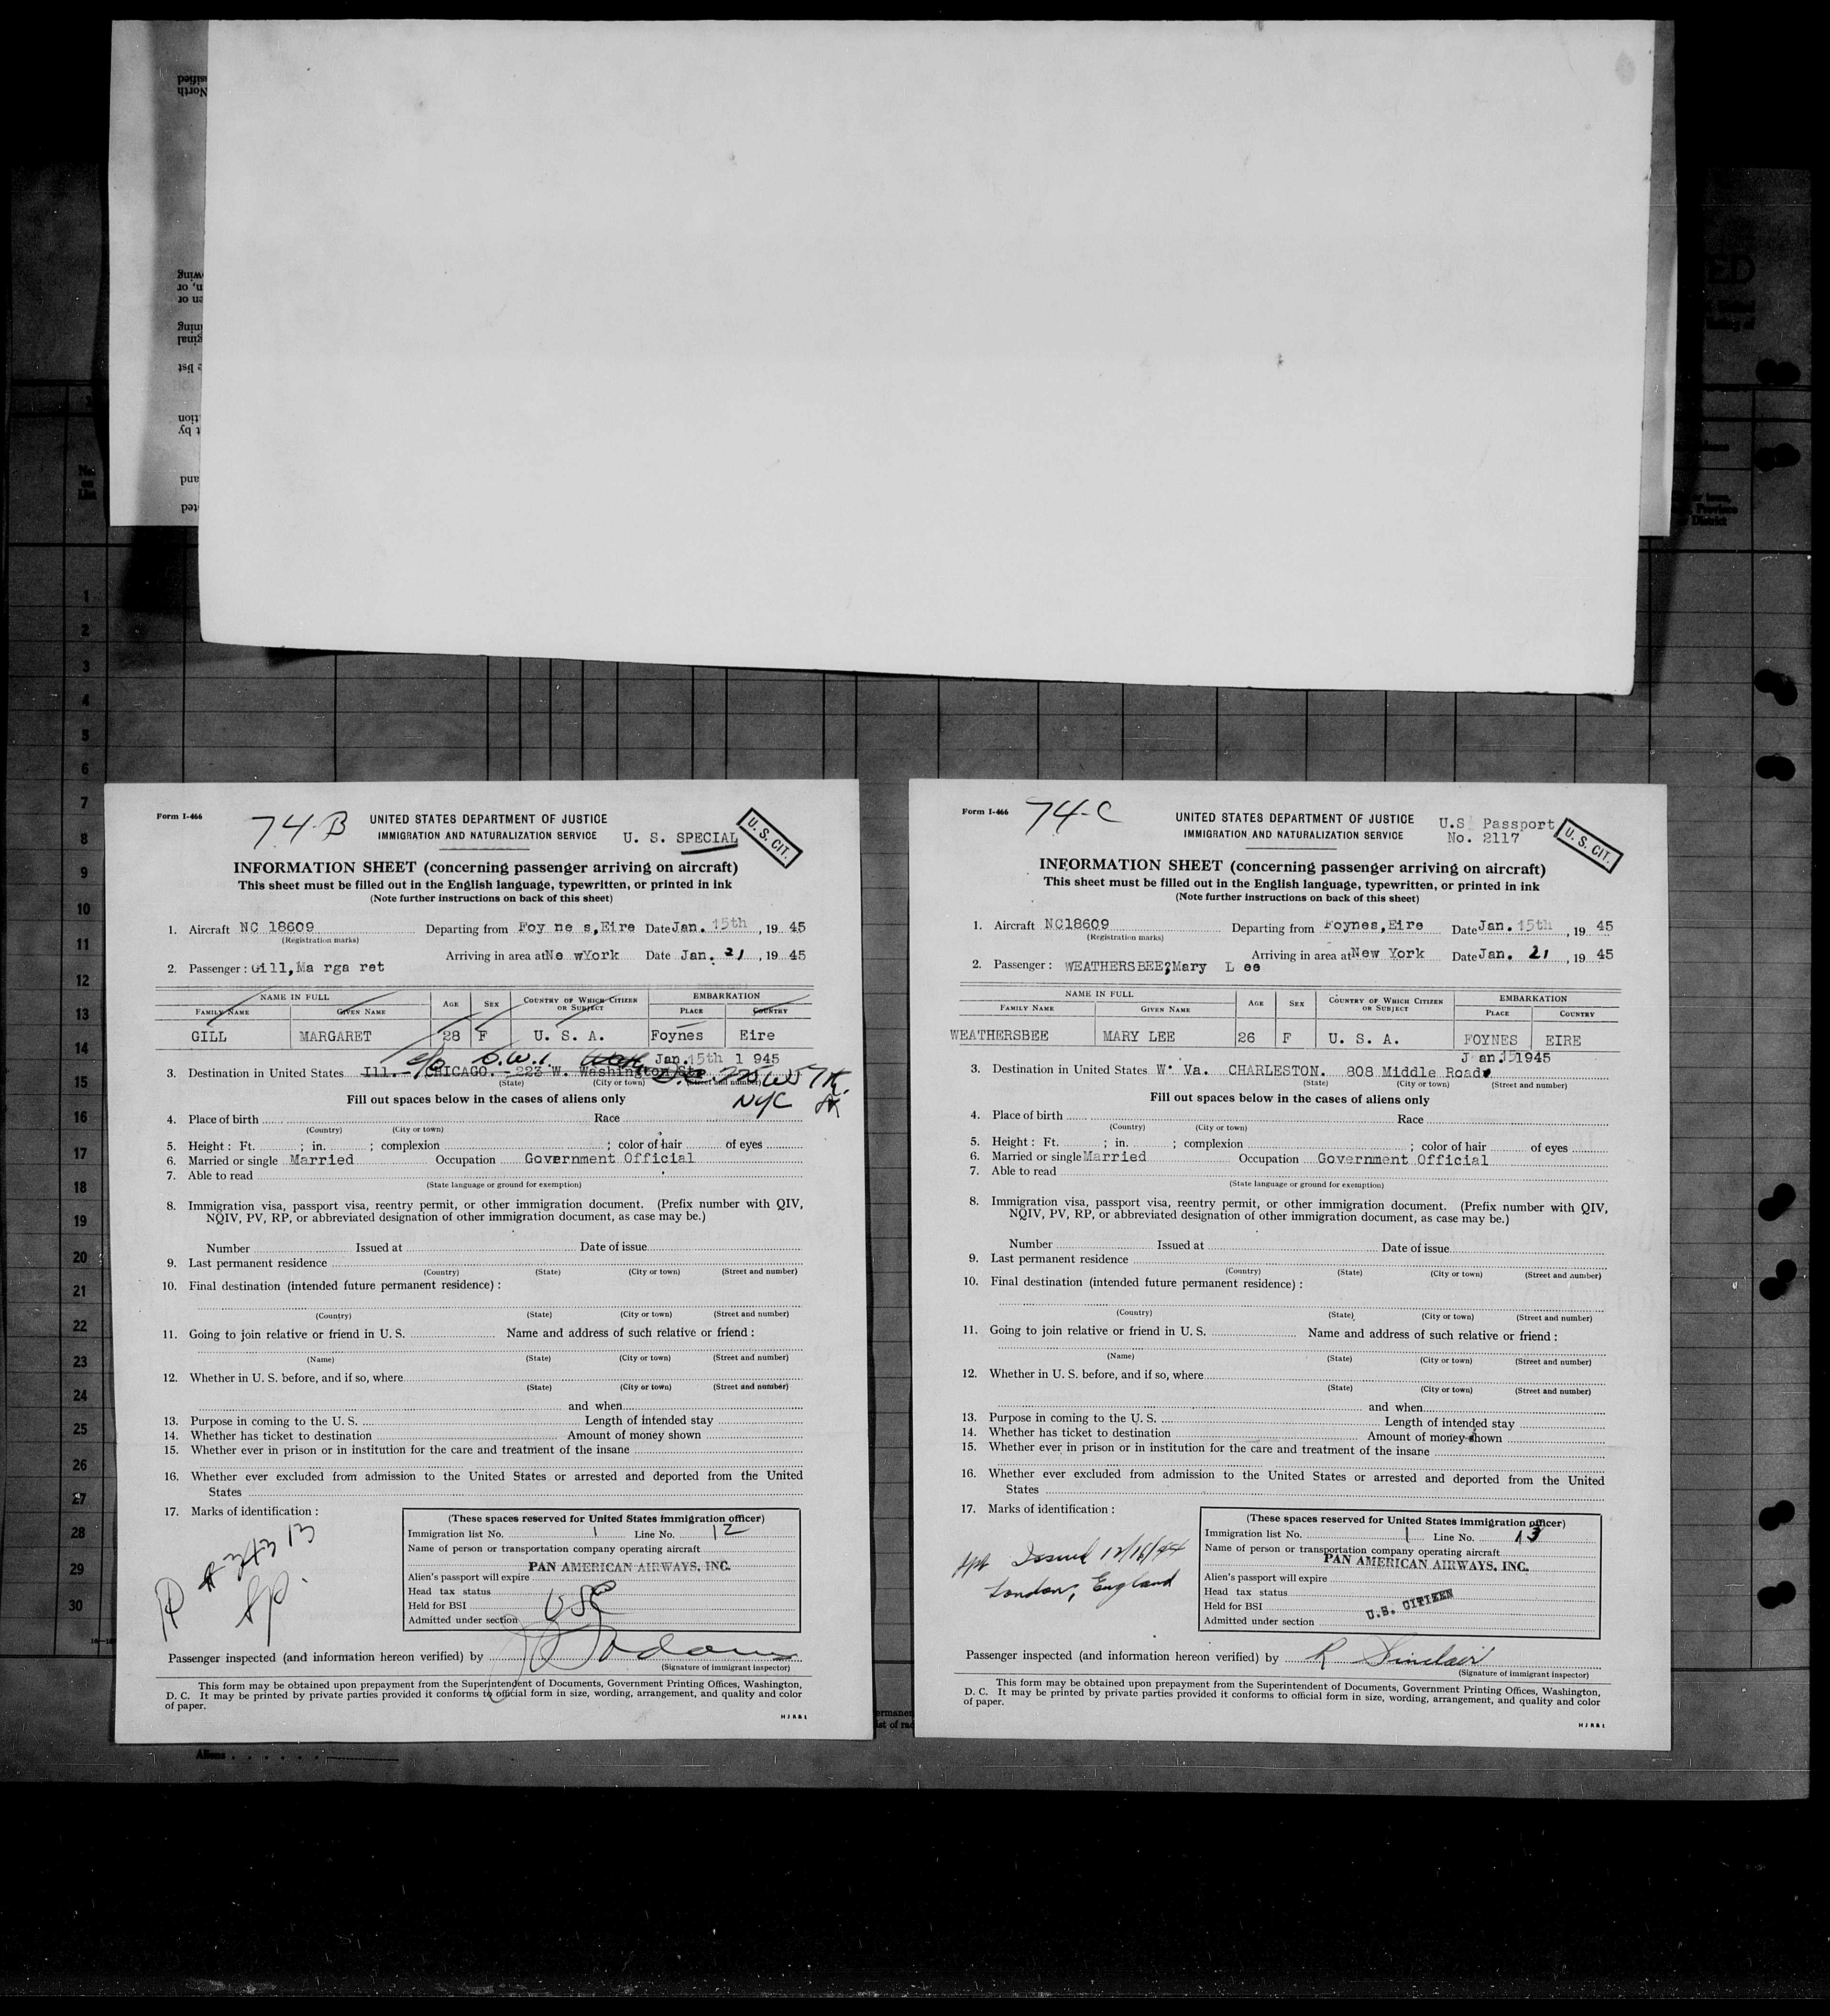 1
2
3
4
5
6
7
8
9
10
11
12
13
14
15
16
17
18
19
20
21
22
23
24
25
26
27
28
29
30
Form I-466
74-B
UNITED STATES DEPARTMENT OF JUSTICE
IMMIGRATION AND NATURALIZATION SERVICE
U. S. SPECIAL
U. S. CIT.
INFORMATION SHEET (concerning passenger arriving on aircraft)
This sheet must be filled out in the English language, typewritten, or printed in ink
(Note further instructions on back of this sheet)
1. Aircraft NC 18609 Departing from Foy ne s,Eire Date Jan. 15th, 19 45
(Registration marks)
Arriving in area at Ne wYork Date Jan. 21, 19 45
2. Passenger: Gill,Ma rga ret
NAME IN FULL AGE SEX COUNTRY OF WHICH CITIZEN OR SUBJECT EMBARKATION
FAMILY NAME GIVEN NAME PLACE COUNTRY
GILL MARGARET 28 F U. S. A. Foynes Eire
c/o O.W.I. Wash Jan.15th 1 945
3. Destination in United States Ill. - CHICAGO. - 223 W. Washington Str. D.C. 225 W 57th
(State) (City or town) (Street and number)
NYC St
Fill out spaces below in the cases of aliens only
4. Place of birth Race
(Country) (City or town)
5. Height: Ft. ; in. ; complexion ; color of hair of eyes
6. Married or single Married Occupation Government Official
7. Able to read
(State language or ground for exemption)
8. Immigration visa, passport visa, reentry permit, or other immigration document. (Prefix number with QIV,
NQIV, PV, RP, or abbreviated designation of other immigration document, as case may be.)
Number Issued at Date of issue
9. Last permanent residence
(Country) (State) (City or town) (Street and number)
10. Final destination (intended future permanent residence):
(Country) (State) (City or town) (Street and number)
11. Going to join relative or friend in U. S. Name and address of such relative or friend:
(Name) (State) (City or town) (Street and number)
12. Whether in U. S. before, and if so, where
(State) (City or town) (Street and number)
and when
13. Purpose in coming to the U. S. Length of intended stay
14. Whether has ticket to destination Amount of money shown
15. Whether ever in prison or in institution for the care and treatment of the insane
16. Whether ever excluded from admission to the United States or arrested and deported from the United
States
17. Marks of identification:
Sp.
(These spaces reserved for United States immigration officer)
Immigration list No. 1 Line No. 12
Name of person or transportation company operating aircraft
PAN AMERICAN AIRWAYS, INC.
Alien's passport will expire
Head tax status
Held for BSI USC
Admitted under section
Passenger inspected (and information hereon verified) by
(Signature of immigrant inspector)
This form may be obtained upon prepayment from the Superintendent of Documents, Government Printing Offices, Washington,
D. C. It may be printed by private parties provided it conforms to official form in size, wording, arrangement, and quality and color
of paper.
H J R & L
Aliens
Form I-466
74-C
UNITED STATES DEPARTMENT OF JUSTICE
IMMIGRATION AND NATURALIZATION SERVICE
U.S Passport
No. 2117
U. S. CIT.
INFORMATION SHEET (concerning passenger arriving on aircraft)
This sheet must be filled out in the English language, typewritten, or printed in ink
(Note further instructions on back of this sheet)
1. Aircraft NC18609 Departing from Foynes,Eire Date Jan. 15th, 19 45
(Registration marks)
Arriving in area at New York Date Jan. 21, 19 45
2. Passenger: WEATHERSBEE,Mary L ee
NAME IN FULL AGE SEX COUNTRY OF WHICH CITIZEN OR SUBJECT EMBARKATION
FAMILY NAME GIVEN NAME PLACE COUNTRY
WEATHERSBEE MARY LEE 26 F U. S. A. FOYNES EIRE
J an.151945
3. Destination in United States W. Va. CHARLESTON. 808 Middle Road.
(State) (City or town) (Street and number)
Fill out spaces below in the cases of aliens only
4. Place of birth Race
(Country) (City or town)
5. Height: Ft. ; in. ; complexion ; color of hair of eyes
6. Married or single Married Occupation Government Official
7. Able to read
(State language or ground for exemption)
8. Immigration visa, passport visa, reentry permit, or other immigration document. (Prefix number with QIV,
NQIV, PV, RP, or abbreviated designation of other immigration document, as case may be.)
Number Issued at Date of issue
9. Last permanent residence
(Country) (State) (City or town) (Street and number)
10. Final destination (intended future permanent residence):
(Country) (State) (City or town) (Street and number)
11. Going to join relative or friend in U. S. Name and address of such relative or friend:
(Name) (State) (City or town) (Street and number)
12. Whether in U. S. before, and if so, where
(State) (City or town) (Street and number)
and when
13. Purpose in coming to the U. S. Length of intended stay
14. Whether has ticket to destination Amount of money shown
15. Whether ever in prison or in institution for the care and treatment of the insane
16. Whether ever excluded from admission to the United States or arrested and deported from the United
States
17. Marks of identification:
Issued 12/16/44
London, England
(These spaces reserved for United States immigration officer)
Immigration list No. 1 Line No. 13
Name of person or transportation company operating aircraft
PAN AMERICAN AIRWAYS, INC.
Alien's passport will expire
Head tax status
Held for BSI U.S. CITIZEN
Admitted under section
Passenger inspected (and information hereon verified) by R Sinclair
(Signature of immigrant inspector)
This form may be obtained upon prepayment from the Superintendent of Documents, Government Printing Offices, Washington,
D. C. It may be printed by private parties provided it conforms to official form in size, wording, arrangement, and quality and color
of paper.
H J R & L